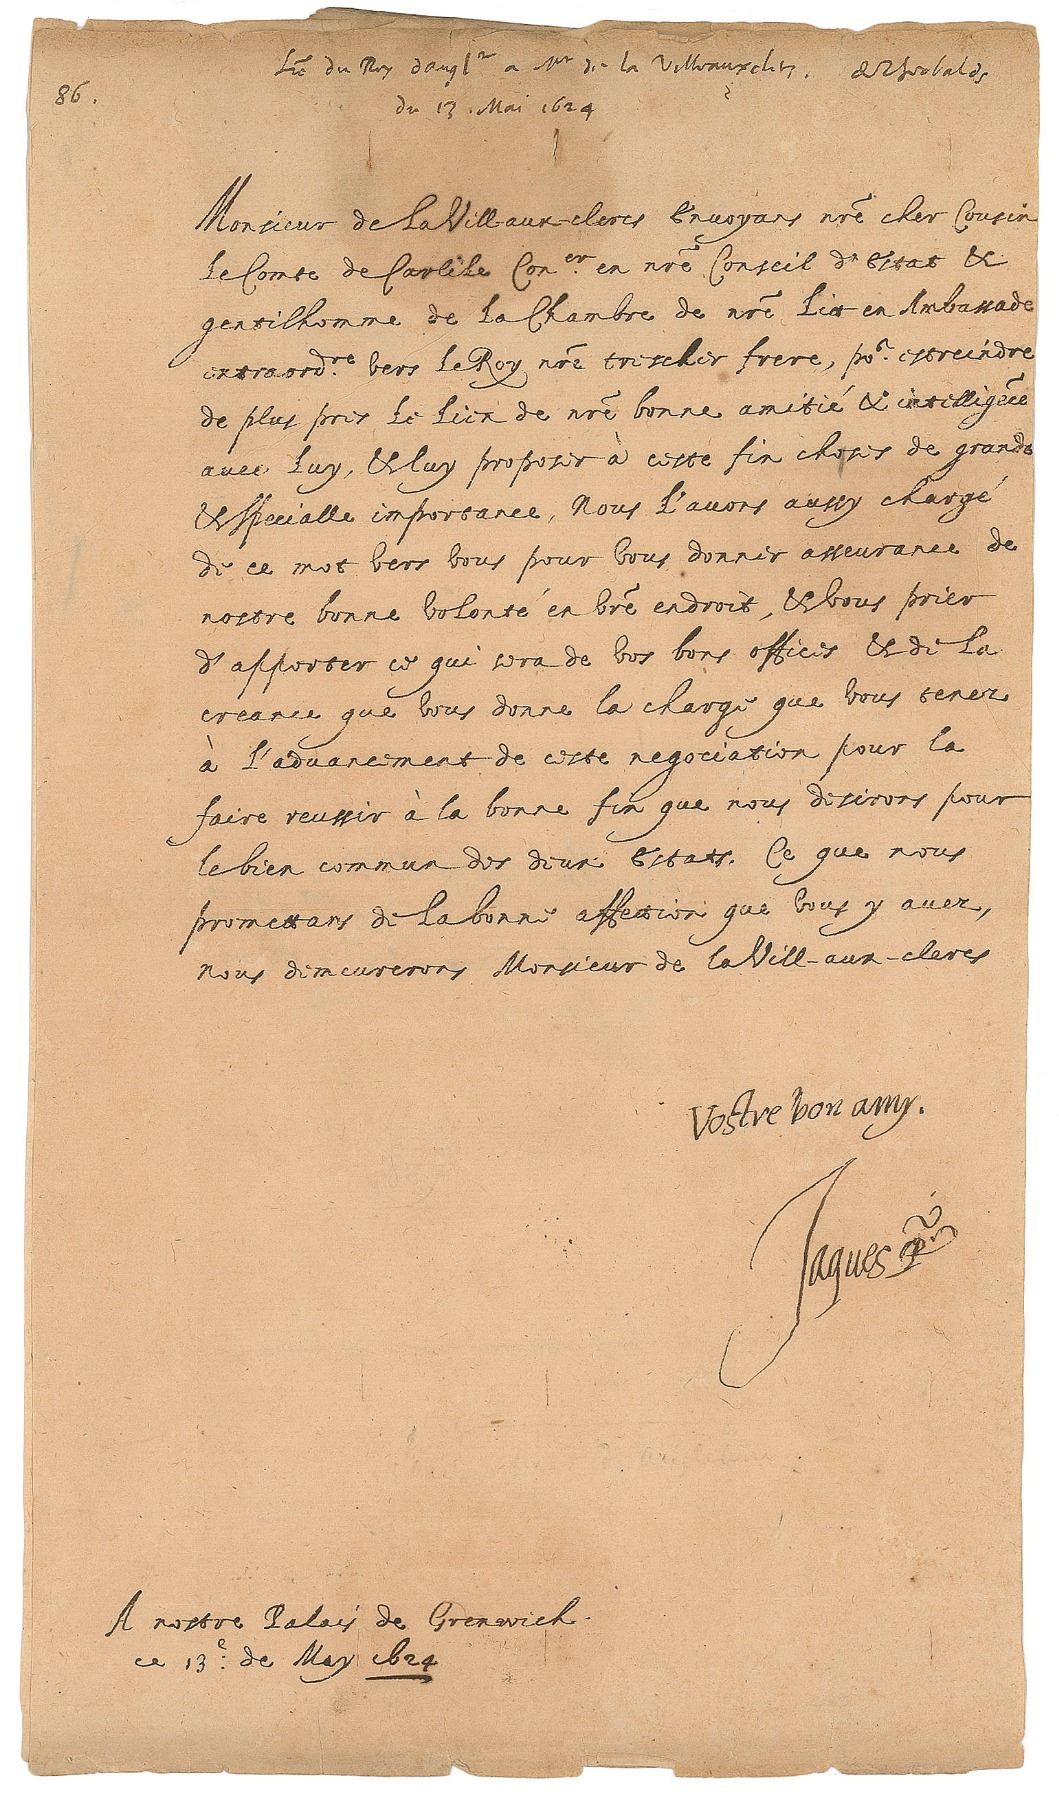 Lre du Roy dangl.re a Mr de la Villeauxclers. de Theobalds
86.
du 13. Mai 1624
Monsieur de La Vill-aux-clercs Envoyans nrẽ cher Cousin
Le Comte de Carlile Con.er en nrẽ Conseil d'Estat &
gentilhomme de La Chambre de nrẽ Lict en Ambassade
extraord.re vers Le Roy nrẽ trescher frere, po.r estreindre
de plus pres Le Lien de nrẽ bonne amitié & intelligẽce
avec Luy, & luy proposer à ceste fin choses de grande
& specialle importance, Nous L'avons aussy chargé
de ce mot vers vous pour vous donner asseurance de
nostre bonne volonté en vrẽ endroit, & vous prier
d'apporter ce qui sera de vos bons offices & de La
creance que vous donne la charge que vous tenez
à l'advancement de ceste negociation pour la
faire reussir à la bonne fin que nous desirons pour
le bien commun des deux Estats. Ce que nous
promettans de La bonne affection que vous y avez,
nous demeurerons Monsieur de la Vill-aux-clercs
Vostre bon amy.
Jaques R
A nostre Palais de Grenwich
ce 13.e de May 1624